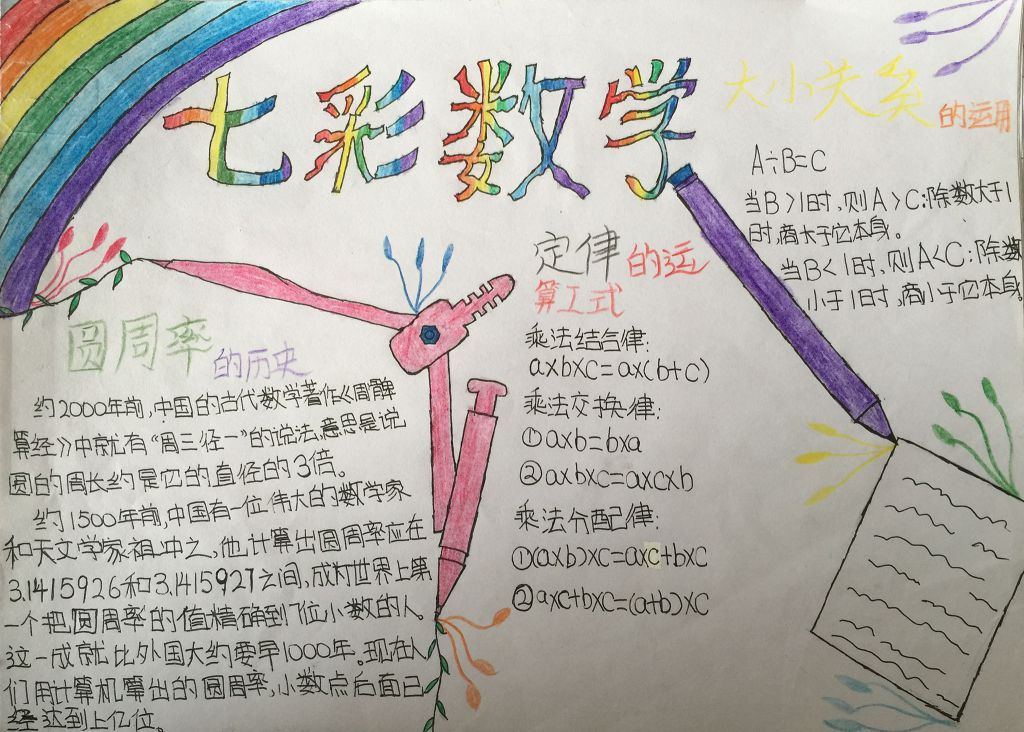 七彩数学
大小关系的运用
A÷B=C
当B>1时,则A>C:除数大于1
时,商大于它本身。
当B<1时,则A<C:除数
小于1时,商小于它本身。
定律的运
算工式
乘法结合律:
axbxc=ax(b+c)
乘法交换律:
①axb=bxa
②axbxc=axcxb
乘法分配律:
①(axb)xc=axc+bxc
②axc+bxc=(a+b)xc
圆周率的历史
约2000年前,中国的古代数学著作《周髀
算经》中就有“周三径一”的说法,意思是说
圆的周长约是它的直径的3倍。
约1500年前,中国有一位伟大的数学家
和天文学家祖冲之,他计算出圆周率应在
3.1415926和3.1415927之间,成为世界上第
一个把圆周率的值精确到7位小数的人。
这一成就比外国大约要早1000年。现在人
们用计算机算出的圆周率,小数点后面已
经达到上亿位。